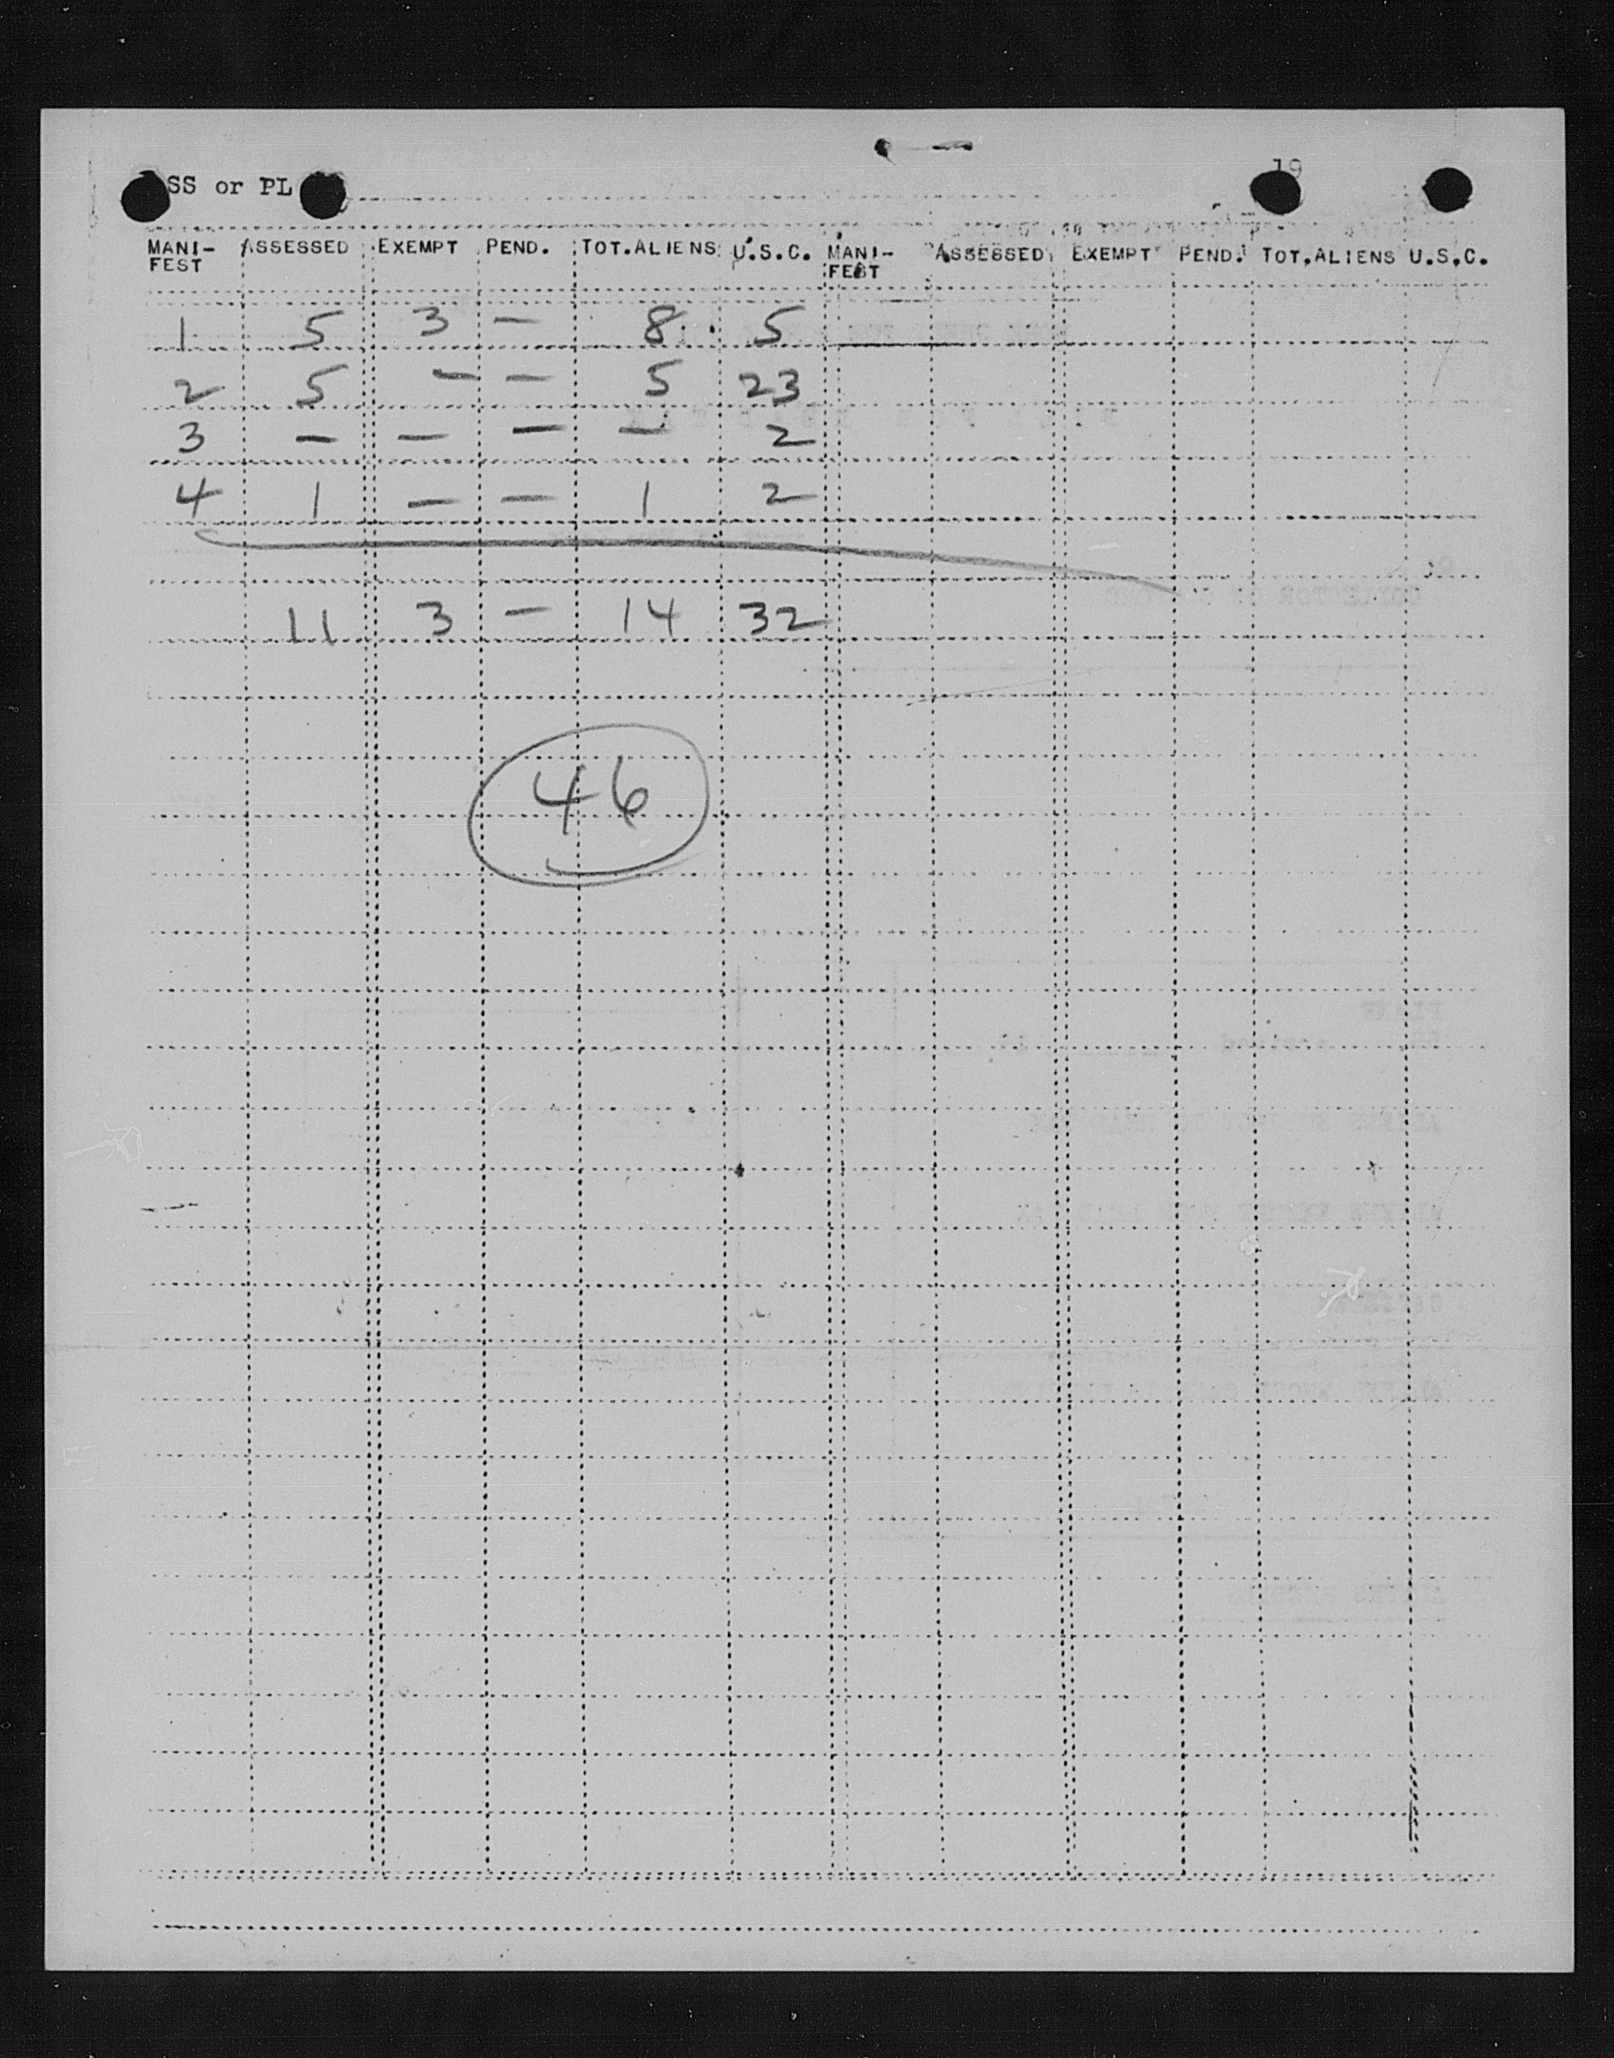 19
SS or PL
MANI- ASSESSED EXEMPT PEND. TOT.ALIENS U.S.C. MANI- ASSESSED EXEMPT PEND. TOT.ALIENS U.S.C.
FEST FEST
1 5 3 — 8 5
2 5 — — 5 23
3 — — — — 2
4 1 — — 1 2
11 3 — 14 32
46